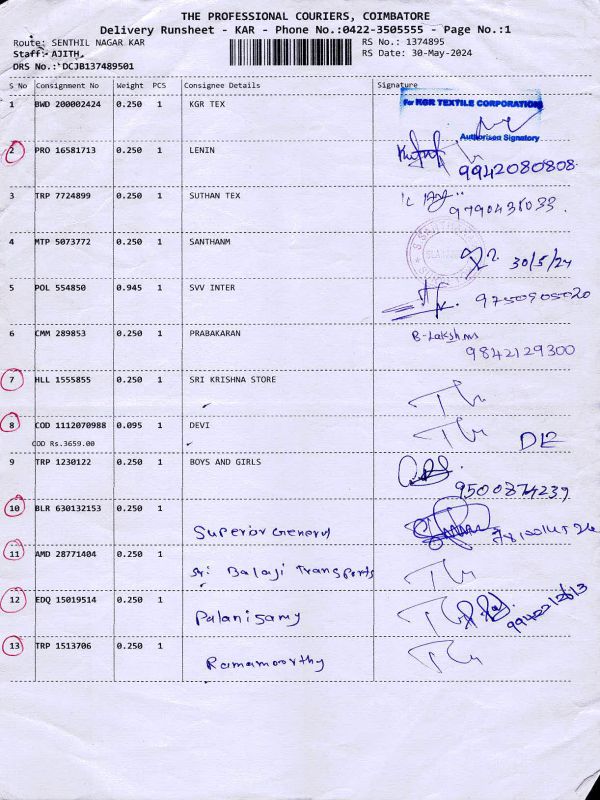 THE PROFESSIONAL COURIERS, COIMBATORE
Delivery Runsheet - KAR - Phone No.:0422-3505555 - Page No.:1
Route: SENTHIL NAGAR KAR RS No.: 1374895
Staff:- AJITH, RS Date: 30-May-2024
DRS No.: DCJB137489501
S No Consignment No Weight PCS Consignee Details Signature
1 BWD 200002424 0.250 1 KGR TEX
For KGR TEXTILE CORPORATION
Authorised Signatory
2 PRO 16581713 0.250 1 LENIN
9942080808
3 TRP 7724899 0.250 1 SUTHAN TEX
4 MTP 5073772 0.250 1 SANTHANM
30/5/24
5 POL 554850 0.945 1 SVV INTER
9750905020
6 CMM 289853 0.250 1 PRABAKARAN B-Lakshmi
9842129300
7 HLL 1555855 0.250 1 SRI KRISHNA STORE
8 COD 1112070988 0.095 1 DEVI
COD Rs.3659.00
9 TRP 1230122 0.250 1 BOYS AND GIRLS
9500874239
10 BLR 630132153 0.250 1
Superior General
11 AMD 28771404 0.250 1
Sri Balaji Transports
12 EDQ 15019514 0.250 1
Palanisamy
13 TRP 1513706 0.250 1
Ramamoorthy